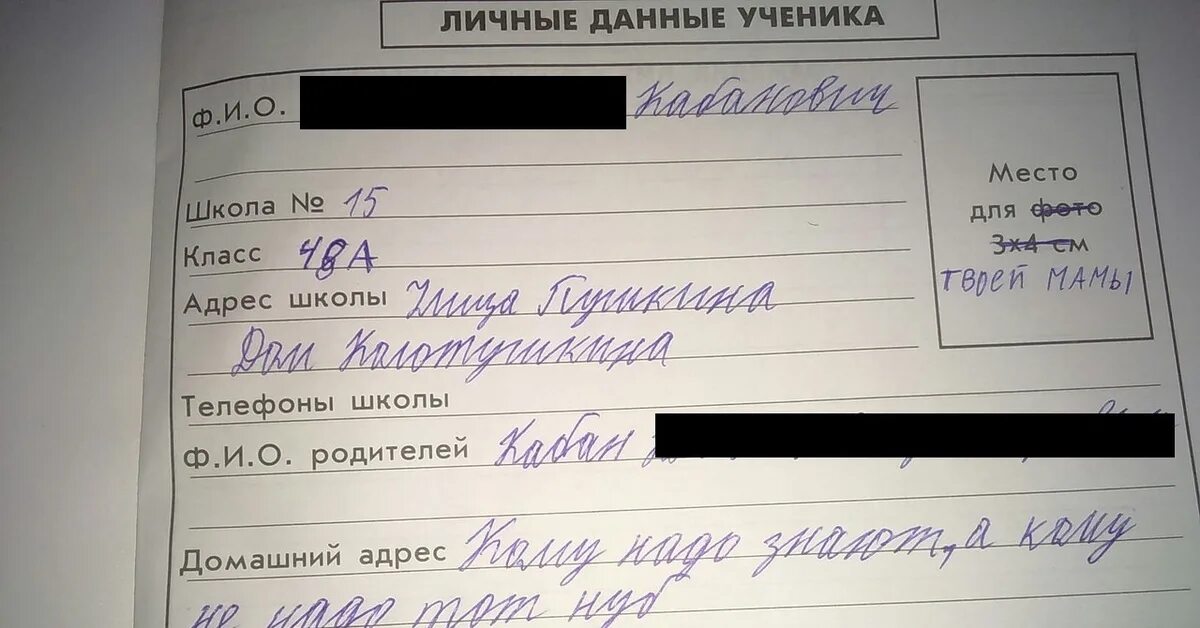 ЛИЧНЫЕ ДАННЫЕ УЧЕНИКА
Ф.И.О. Кабанович
Школа № 15
Класс 48А
Адрес школы Улица Пушкина
Дом Колотушкина
Телефоны школы
Ф.И.О. родителей Кабан
Домашний адрес Кому надо знают, а кому
не надо тот нуб
Место
для фото
3х4 см
ТВОЕЙ МАМЫ